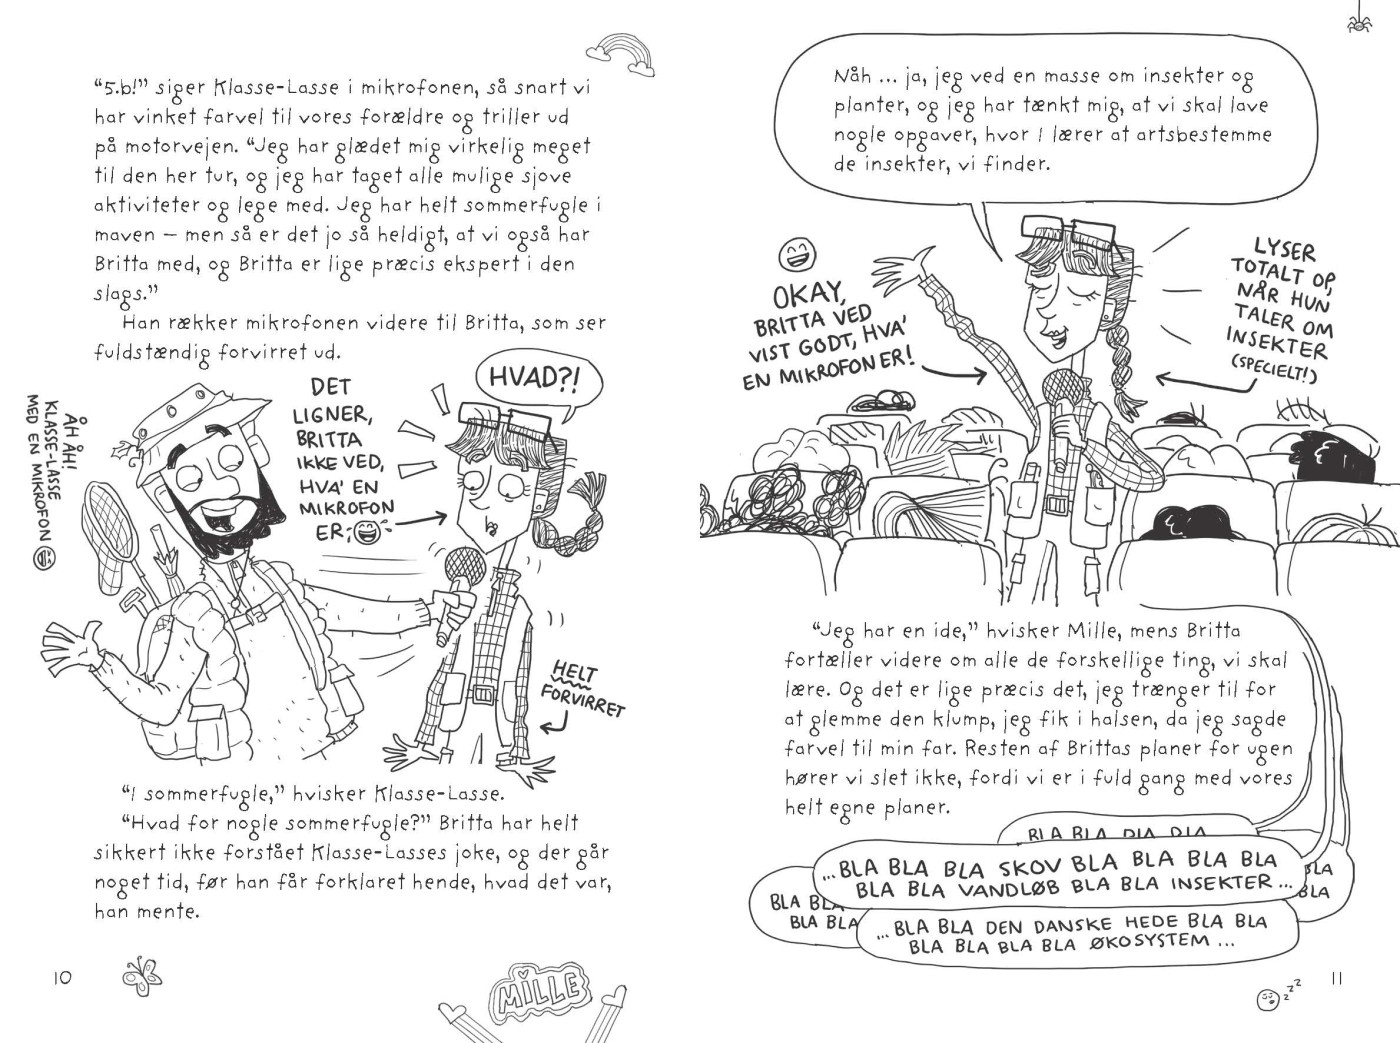 “5.b!” siger Klasse-Lasse i mikrofonen, så snart vi
har vinket farvel til vores forældre og triller ud
på motorvejen. “Jeg har glædet mig virkelig meget
til den her tur, og jeg har taget alle mulige sjove
aktiviteter og lege med. Jeg har helt sommerfugle i
maven – men så er det jo så heldigt, at vi også har
Britta med, og Britta er lige præcis ekspert i den
slags.”
Han rækker mikrofonen videre til Britta, som ser
fuldstændig forvirret ud.
ÅH ÅH!
KLASSE-LASSE
MED EN MIKROFON
DET
LIGNER,
BRITTA
IKKE VED,
HVA' EN
MIKROFON
ER;
HVAD?!
HELT
FORVIRRET
“I sommerfugle,” hvisker Klasse-Lasse.
“Hvad for nogle sommerfugle?” Britta har helt
sikkert ikke forstået Klasse-Lasses joke, og der går
noget tid, før han får forklaret hende, hvad det var,
han mente.
10
MILLE
Nåh ... ja, jeg ved en masse om insekter og
planter, og jeg har tænkt mig, at vi skal lave
nogle opgaver, hvor I lærer at artsbestemme
de insekter, vi finder.
OKAY,
BRITTA VED
VIST GODT, HVA'
EN MIKROFON ER!
LYSER
TOTALT OP,
NÅR HUN
TALER OM
INSEKTER
(SPECIELT!)
“Jeg har en ide,” hvisker Mille, mens Britta
fortæller videre om alle de forskellige ting, vi skal
lære. Og det er lige præcis det, jeg trænger til for
at glemme den klump, jeg fik i halsen, da jeg sagde
farvel til min far. Resten af Brittas planer for ugen
hører vi slet ikke, fordi vi er i fuld gang med vores
helt egne planer.
BLA BLA BLA BLA
...BLA BLA BLA SKOV BLA BLA BLA BLA
BLA BLA VANDLØB BLA BLA INSEKTER...
BLA
BLA
BLA BLA
BLA BLA
...BLA BLA DEN DANSKE HEDE BLA BLA
BLA BLA BLA BLA ØKOSYSTEM...
11
z z z